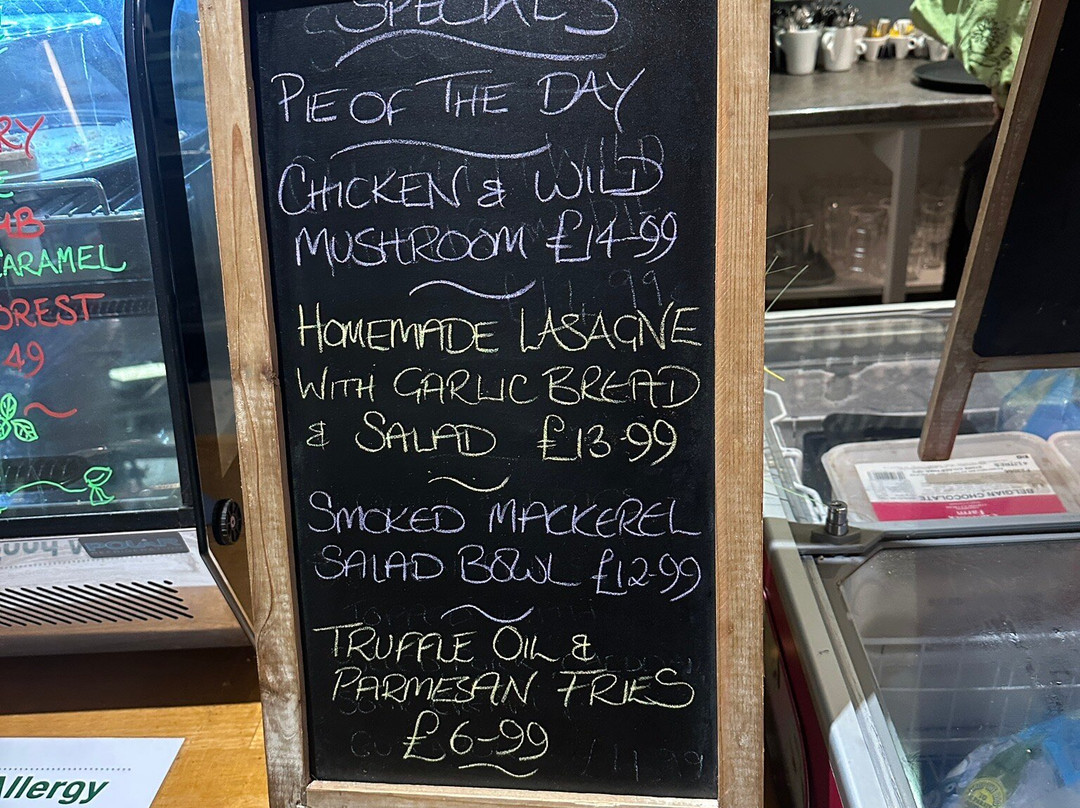 SPECIALS
PIE OF THE DAY
CHICKEN & WILD
MUSHROOM £14-99
HOMEMADE LASAGNE
WITH GARLIC BREAD
& SALAD £13-99
SMOKED MACKEREL
SALAD BOWL £12-99
TRUFFLE OIL &
PARMESAN FRIES
£6-99
RY
CARAMEL
OREST
49
Allergy
BELGIAN CHOCOLATE